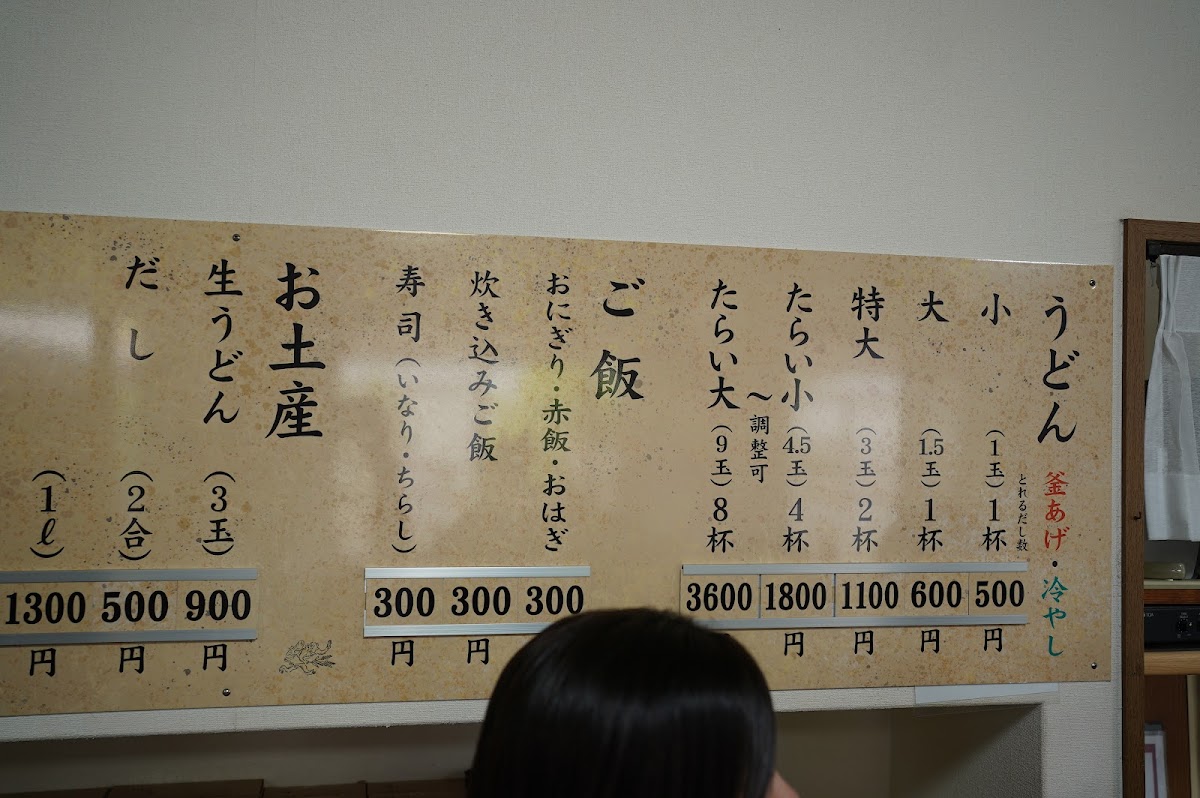 うどん 釜あげ・冷やし
とれるだし数
小 (1玉) 1杯 500円
大 (1.5玉) 1杯 600円
特大 (3玉) 2杯 1100円
たらい小 (4.5玉) 4杯 1800円
〜調整可
たらい大 (9玉) 8杯 3600
ご飯
おにぎり・赤飯・おはぎ 300
炊き込みご飯 300円
寿司 (いなり・ちらし) 300円
お土産
生うどん (3玉) 900円
だし (2合) 500円
(1ℓ) 1300円